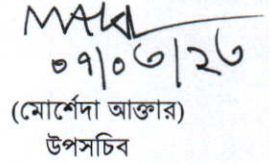 ০৭/০৩/২৩
(মোর্শেদা আক্তার)
উপসচিব